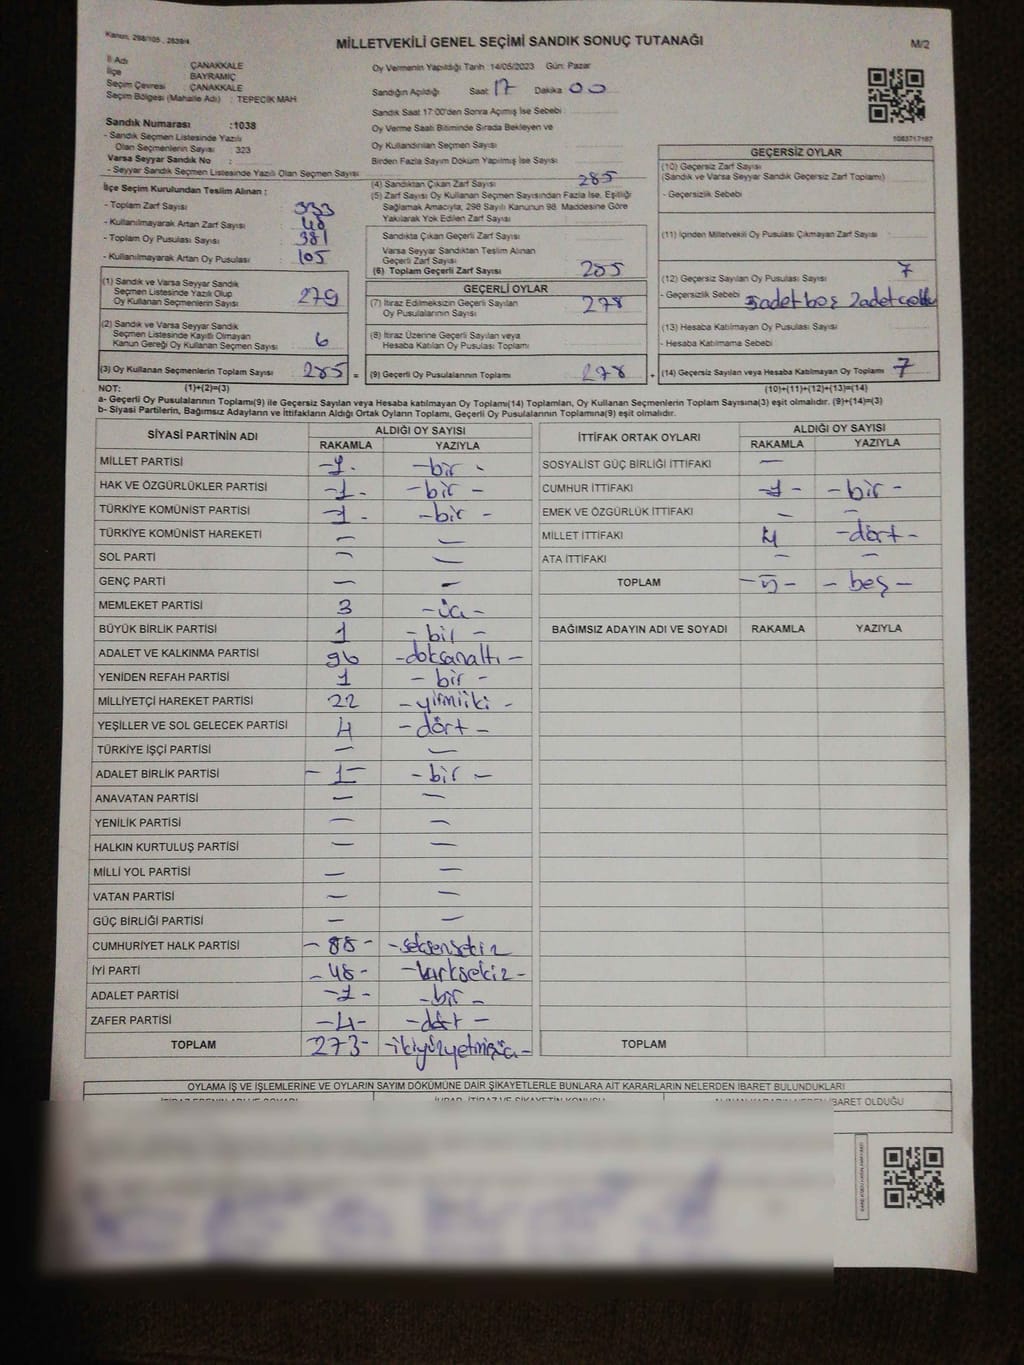 Kanun, 298/105 , 2839/4
MİLLETVEKİLİ GENEL SEÇİMİ SANDIK SONUÇ TUTANAĞI
M/2
İl Adı : ÇANAKKALE
İlçe : BAYRAMİÇ
Seçim Çevresi : ÇANAKKALE
Seçim Bölgesi (Mahalle Adı) : TEPECİK MAH
Oy Vermenin Yapıldığı Tarih :14/05/2023 Gün: Pazar
Sandığın Açıldığı Saat 17 Dakika 00
Sandık Saat 17:00'den Sonra Açılmış İse Sebebi :
Oy Verme Saati Bitiminde Sırada Bekleyen ve
Oy Kullandırılan Seçmen Sayısı
Birden Fazla Sayım Döküm Yapılmış İse Sayısı
Sandık Numarası :1038
- Sandık Seçmen Listesinde Yazılı
Olan Seçmenlerin Sayısı 323
Varsa Seyyar Sandık No :
- Seyyar Sandık Seçmen Listesinde Yazılı Olan Seçmen Sayısı
İlçe Seçim Kurulundan Teslim Alınan :
- Toplam Zarf Sayısı 333
- Kullanılmayarak Artan Zarf Sayısı 48
- Toplam Oy Pusulası Sayısı 381
- Kullanılmayarak Artan Oy Pusulası 105
(1) Sandık ve Varsa Seyyar Sandık
Seçmen Listesinde Yazılı Olup
Oy Kullanan Seçmenlerin Sayısı 279
(2) Sandık ve Varsa Seyyar Sandık
Seçmen Listesinde Kayıtlı Olmayan
Kanun Gereği Oy Kullanan Seçmen Sayısı 6
(3) Oy Kullanan Seçmenlerin Toplam Sayısı 285 =
(4) Sandıktan Çıkan Zarf Sayısı 285
(5) Zarf Sayısı Oy Kullanan Seçmen Sayısından Fazla İse, Eşitliği
Sağlamak Amacıyla, 298 Sayılı Kanunun 98. Maddesine Göre
Yakılarak Yok Edilen Zarf Sayısı
Sandıkta Çıkan Geçerli Zarf Sayısı
Varsa Seyyar Sandıktan Teslim Alınan
Geçerli Zarf Sayısı
(6) Toplam Geçerli Zarf Sayısı 285
GEÇERLİ OYLAR
(7) İtiraz Edilmeksizin Geçerli Sayılan
Oy Pusulalarının Sayısı 278
(8) İtiraz Üzerine Geçerli Sayılan veya
Hesaba Katılan Oy Pusulası Toplamı
(9) Geçerli Oy Pusulalarının Toplamı 278 +
1083717187
GEÇERSİZ OYLAR
(10) Geçersiz Zarf Sayısı
(Sandık ve Varsa Seyyar Sandık Geçersiz Zarf Toplamı)
- Geçersizlik Sebebi
(11) İçinden Milletvekili Oy Pusulası Çıkmayan Zarf Sayısı
(12) Geçersiz Sayılan Oy Pusulası Sayısı 7
- Geçersizlik Sebebi 5 adet boş 2 adet
(13) Hesaba Katılmayan Oy Pusulası Sayısı
- Hesaba Katılmama Sebebi
(14) Geçersiz Sayılan veya Hesaba Katılmayan Oy Toplamı 7
NOT: (1)+(2)=(3)
(10)+(11)+(12)+(13)=(14)
a- Geçerli Oy Pusulalarının Toplamı(9) ile Geçersiz Sayılan veya Hesaba katılmayan Oy Toplamı(14) Toplamları, Oy Kullanan Seçmenlerin Toplam Sayısına(3) eşit olmalıdır. (9)+(14)=(3)
b- Siyasi Partilerin, Bağımsız Adayların ve İttifakların Aldığı Ortak Oyların Toplamı, Geçerli Oy Pusulalarının Toplamına(9) eşit olmalıdır.
SİYASİ PARTİNİN ADI
ALDIĞI OY SAYISI
RAKAMLA YAZIYLA
MİLLET PARTİSİ -1- -bir-
HAK VE ÖZGÜRLÜKLER PARTİSİ -1- -bir-
TÜRKİYE KOMÜNİST PARTİSİ -1- -bir-
TÜRKİYE KOMÜNİST HAREKETİ - -
SOL PARTİ - -
GENÇ PARTİ - -
MEMLEKET PARTİSİ 3 -üç-
BÜYÜK BİRLİK PARTİSİ 1 -bir-
ADALET VE KALKINMA PARTİSİ 96 -doksanaltı-
YENİDEN REFAH PARTİSİ 1 -bir-
MİLLİYETÇİ HAREKET PARTİSİ 22 -yirmiiki-
YEŞİLLER VE SOL GELECEK PARTİSİ 4 -dört-
TÜRKİYE İŞÇİ PARTİSİ - -
ADALET BİRLİK PARTİSİ -1- -bir-
ANAVATAN PARTİSİ - -
YENİLİK PARTİSİ - -
HALKIN KURTULUŞ PARTİSİ - -
MİLLİ YOL PARTİSİ - -
VATAN PARTİSİ - -
GÜÇ BİRLİĞİ PARTİSİ - -
CUMHURİYET HALK PARTİSİ -88- -seksensekiz
İYİ PARTİ -48- -kırksekiz-
ADALET PARTİSİ -1- -bir-
ZAFER PARTİSİ -4- -dört-
TOPLAM 273- -ikiyüzyetmişüç-
İTTİFAK ORTAK OYLARI
ALDIĞI OY SAYISI
RAKAMLA YAZIYLA
SOSYALİST GÜÇ BİRLİĞİ İTTİFAKI -
CUMHUR İTTİFAKI -1- -bir-
EMEK VE ÖZGÜRLÜK İTTİFAKI - -
MİLLET İTTİFAKI 4 -dört-
ATA İTTİFAKI - -
TOPLAM -5- -beş-
BAĞIMSIZ ADAYIN ADI VE SOYADI RAKAMLA YAZIYLA
TOPLAM
OYLAMA İŞ VE İŞLEMLERİNE VE OYLARIN SAYIM DÖKÜMÜNE DAİR ŞİKAYETLERLE BUNLARA AİT KARARLARIN NELERDEN İBARET BULUNDUKLARI